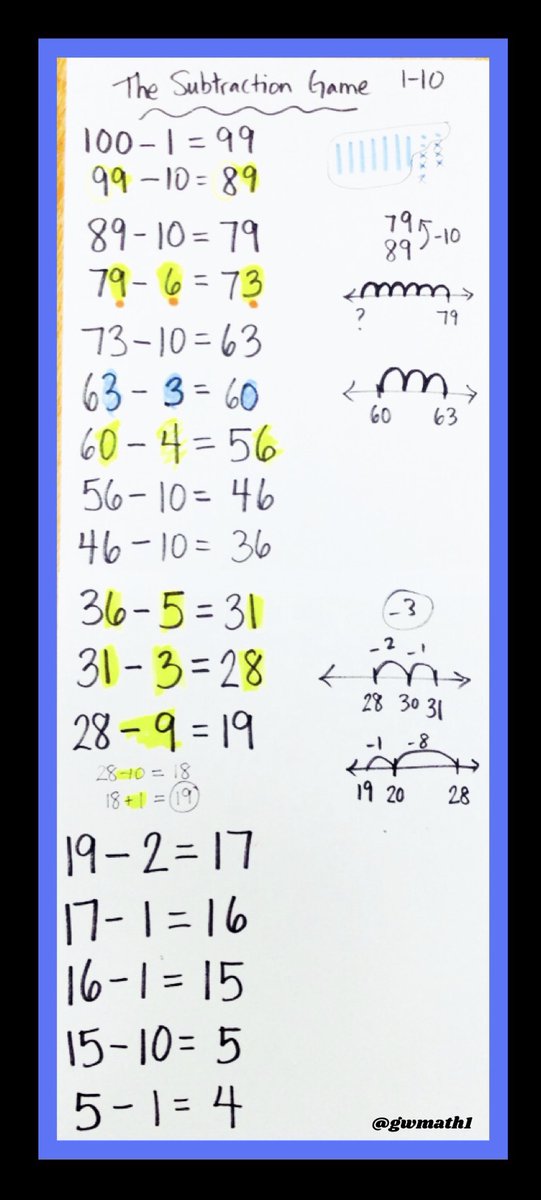 The Subtraction Game 1-10
100 - 1 = 99
99 - 10 = 89
89 - 10 = 79
79
89 -10
79 - 6 = 73
? 79
73 - 10 = 63
63 - 3 = 60
60 63
60 - 4 = 56
56 - 10 = 46
46 - 10 = 36
36 - 5 = 31
-3
31 - 3 = 28
-2 -1
28 30 31
28 - 9 = 19
-1 -8
19 20 28
28 - 10 = 18
18 + 1 = 19
19 - 2 = 17
17 - 1 = 16
16 - 1 = 15
15 - 10 = 5
5 - 1 = 4
@gwmath1